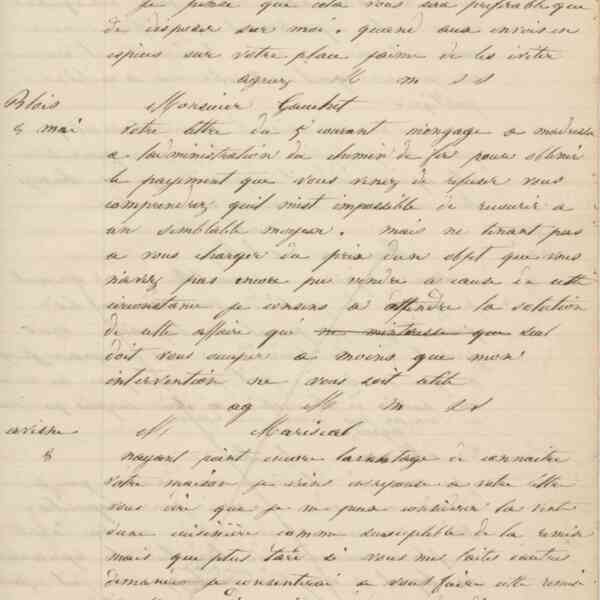 je pense que cela vous sera preferable que
de disposer sur moi. quand aux envois en
espèces sur votre place jaime de les eviter
agreez M m s s
Blois Monsieur Gaubert
8 mai votre lettre du 5 courant mengage a madresser
a ladministration du chemin de fer pour obtenir
le payement que vous venez de refuser vous
comprendrez quil mest impossible de recourir a
un semblable moyen. mais ne tenant pas
a vous charger du prix dun objet que vous
navez pas encore pu vendre a cause de cette
circonstance je consens a attendre la solution
de cette affaire qui ne minteresse que seul
doit vous occuper a moins que mon
intervention ne vous soit utile
ag M m s s
avesne M Mariscal
8 nayant point encore lavantage de connaitre
votre maison je viens en reponse a votre lettre
vous dire que je ne puis considerer la vente
dune cuisinière comme susceptible de la remise
mais que plus tard si vous me faites dautres
demandes je consentirai a vous faire cette remise